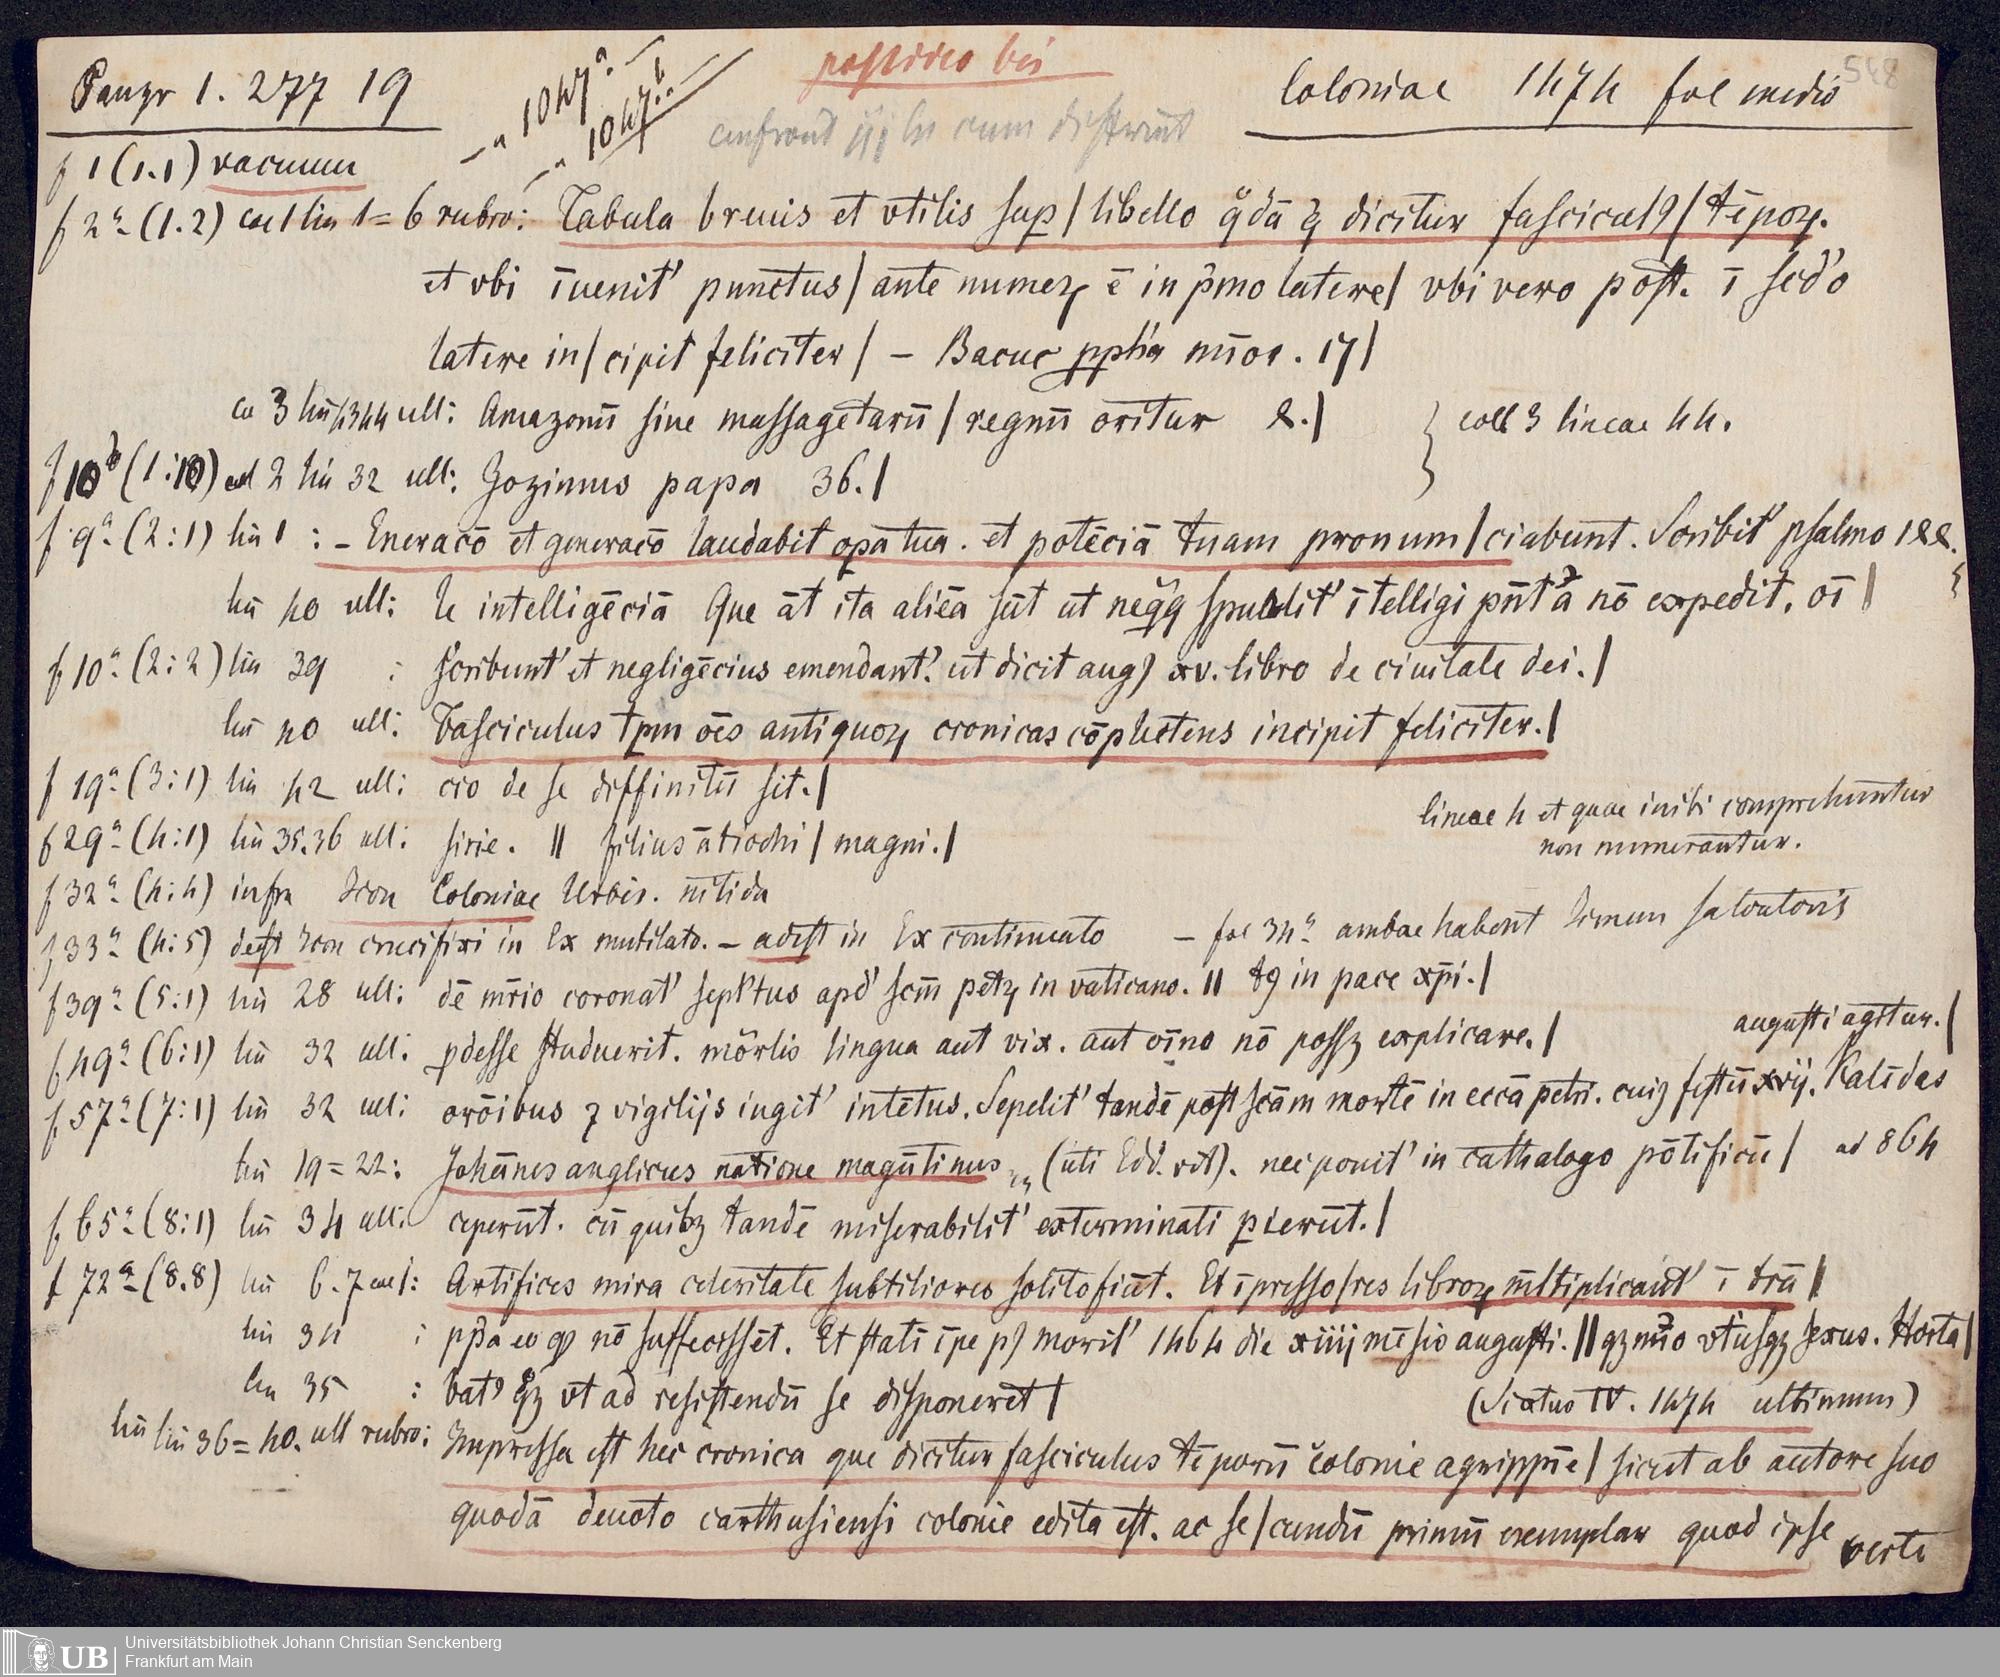 Panzr 1. 277 19
1047ª.
1047.b.
possideo bis
Coloniae 1474 fol medio
548
f 1 (1.1) vacuum
f 2ª (1.2) col 1 lin 1=6 rubro: Tabula breuis et vtilis sup | libello q̊dā q̄ dicitur fasciculꝰ | tēpoꝝ.
et vbi īuenit' punctus | ante numeꝝ ē in p̄mo latere | vbi vero pōst. ī sed'o
latere in | cipit feliciter | – Bacuc ꝓph'a mūoe . 17 |
co 3 lin 43 44 ult: Amazonū siue massagetarū | regnū oritur 2. |
coll 3 lineae 44.
f 10b (1:10) col 2 lin 32 ult: Zozimus papa 36. |
f 9ª (2:1) lin 1 : – Eneracō et generacō laudabit opa tua . et potēciā tuam pronum | ciabunt. Scribit' psalmo 122.
lin 40 ult: le intelligēciā Que āt ita aliēa sūt ut neq̄q̄ ītelligi pn̄t ā nō expedit, oī |
f 10ª (2:2) lin 39 : scribunt' et negligēcius emendant'. ut dicit augꝰ xv. libro de ciuitate dei. |
lin 40 ult: Fasciculus tpm ōēs antiquoꝝ cronicas cōplectens incipit feliciter. |
f 19ª (3:1) lin 42 ult: cio de se diffinitū sit. |
f 29ª (4:1) lin 35.36 ult: sirie. || filius ātiochi | magni. |
lineae 4 et quae initi comprehuntur
non numerantur.
f 32ª (4:4) infra Icon Coloniae Urbis. nitida
f 33ª (4:5) deest Icon crucifixi in Ex mutilato. – adest in Ex continuato – fol 34ª ambae habent Iconem Salvatoris
f 39ª (5:1) lin 28 ult: dē mr̄io coronat' sepl'tus apd' scm̄ petꝝ in vaticano. || tꝰ in pace xp̄i. |
f 49ª (6:1) lin 32 ult: ꝓdesse studuerit. mōrlis lingua aut vix. aut oīno nō possꝫ explicare. |
augusti agitur. |
f 57ª (7:1) lin 32 ult: orōibus ⁊ vigilijs iugit' intētus. Sepelit' tandē post scām mortē in eccā petri. cuiꝰ festū xvij. Kalēdas
lin 19=22: Johānes anglicus natione magūtinus (uti Edd. vet). nec ponit' in cathalogo pōtificū | ad 864
f 65ª (8:1) lin 34 ult: ceperūt. cū quibꝫ tandē miserabilit' exterminati ꝑierūt. |
f 72ª (8.8) lin 6.7 col: Artifices mira celeritate subtiliores solito fiūt. Et īpresso | res libroꝝ m̄ltiplicant' ī trā |
lin 34 : pp̄a eo ꝙ nō suffecissēt. Et statī īpe pꝰ morit' 1464 die xiiij mēsis augusti. || qꝫ mīo vtusqꝫ sexus. Horta |
lin 35 : bat' qꝫ vt ad resistendū se disponeret |
(Sixtus IV. 1474 ultimum)
lin 36=40. ult rubro: Impressa est hec cronica que dicitur fasciculus tēporū Colonie agrippīe | sicut ab autore suo
quodā deuoto carthusiensi colonie edita est. ac se | cundū primū exemplar quod ipse
verte
UB Universitätsbibliothek Johann Christian Senckenberg
Frankfurt am Main